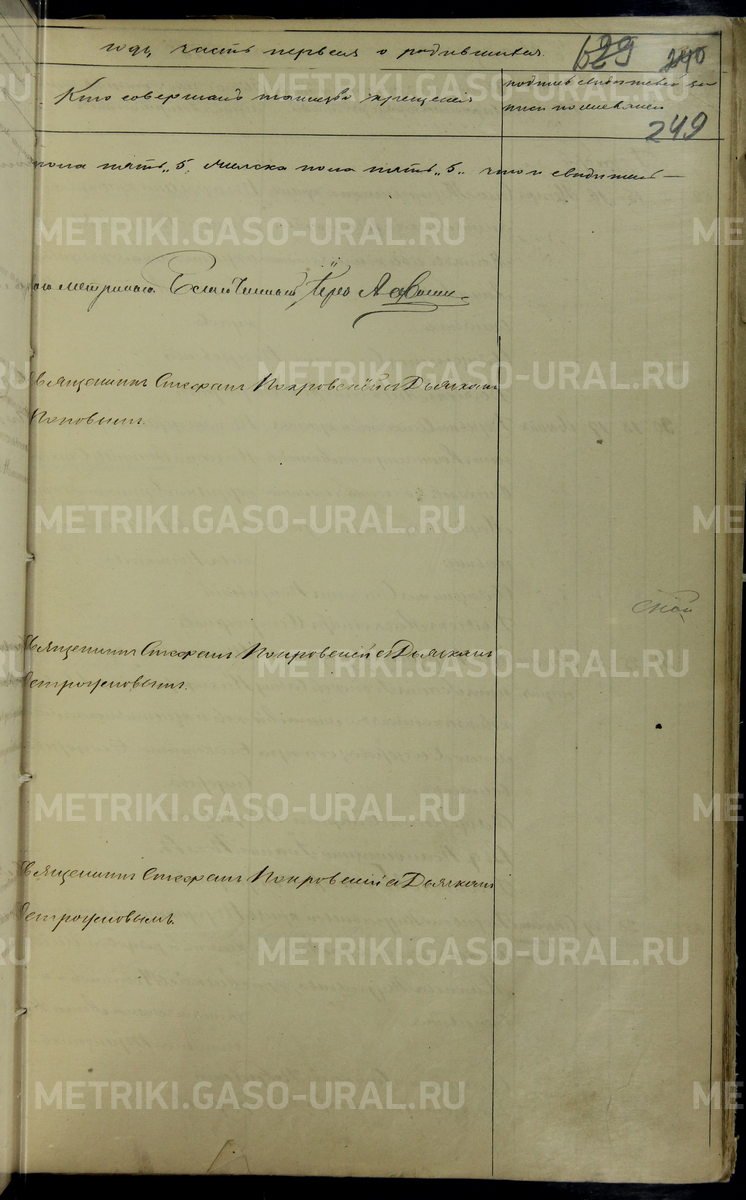 году, часть первая о родившихся.
629 240
Кто совершалъ таинство крещенія
подпись свидетелей за-
писи по желанію
249
пола пять „5„ женска пола пять „5„ что и свидетель—
Благочинный Іерей
Священникъ Стефанъ Покровскій съ Дьячкомъ
Поповымъ.
Священникъ Стефанъ Покровскій съ Дьячкомъ
Остроумовымъ.
Священникъ Стефанъ Покровскій съ Дьячкомъ
Остроумовымъ.
METRIKI.GASO-URAL.RU